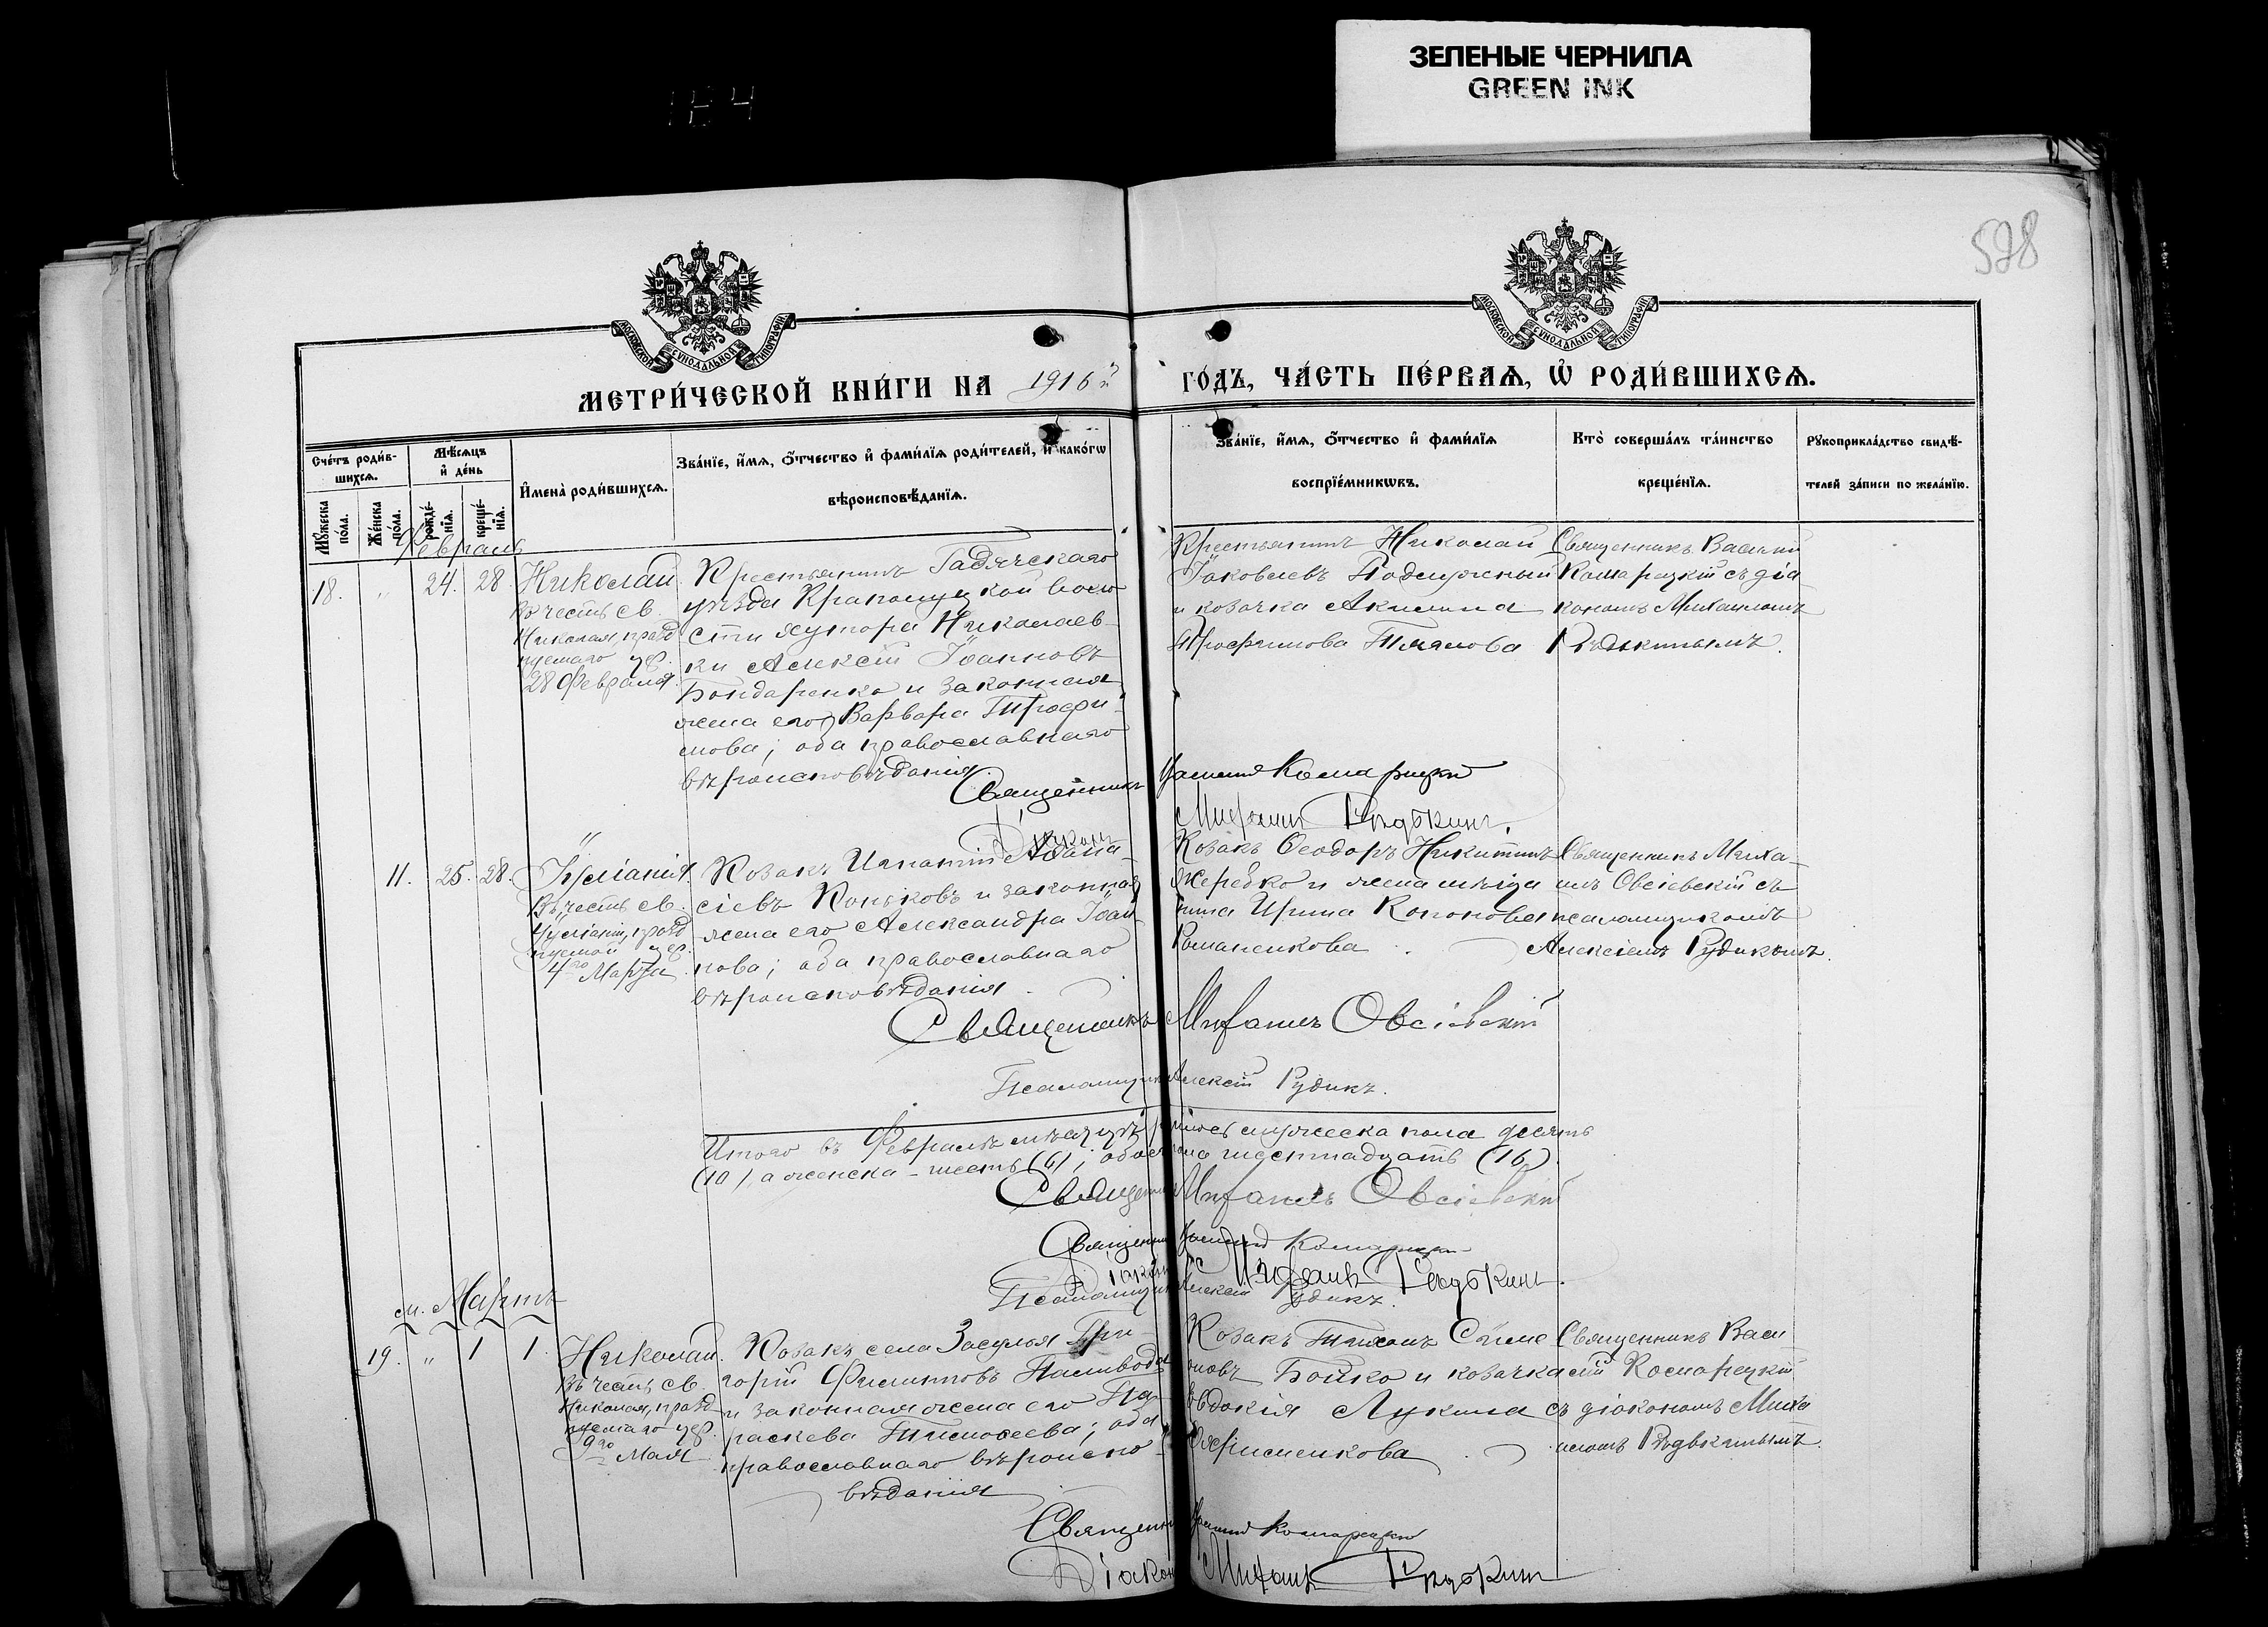 ЗЕЛЕНЫЕ ЧЕРНИЛА
GREEN INK
528
МОСКОВСКОЙ СѴНОДАЛЬНОЙ ТИПОГРАФІИ
МОСКОВСКОЙ СѴНОДАЛЬНОЙ ТИПОГРАФІИ
МЕТРИ́ЧЕСКОЙ КНИ́ГИ НА 1916 г. ГО́ДЪ, ЧА́СТЬ ПЕ́РВАѦ, Ѡ҆ РОДИ́ВШИХСѦ.
Сче́тъ роди́в-
шихсѧ.
Мѣ́сѧцъ
и҆ де́нь
Мꙋ́жеска
по́ла.
Же́нска
по́ла.
рожде́-
нїѧ.
креще́-
нїѧ.
И҆мена̀ роди́вшихсѧ.
Зва́нїе, и҆́мѧ, ѻ҆́тчество и҆ фами́лїѧ роди́телей, и҆ како́гѡ
вѣроисповѣ́данїѧ.
Зва́нїе, и҆́мѧ, ѻ҆́тчество и҆ фами́лїѧ
воспрїе́мникѡвъ.
Кто̀ соверша́лъ та́инство
креще́нїѧ.
Рꙋкоприкла́дство свидѣ́-
телей за́писи по жела́нїю.
Февраль
18. " 24. 28. Николай
въ честь св.
Николая, празд
нуемаго цер.
28 Февраля.
Крестьянинъ Гадячскаго
уѣзда Краполуцкой воло
сти хутора Николаев-
ки Алексѣй Іоанновъ
Бондаренко и законная
жена его Варвара Трофи-
мова; оба православнаго
вѣроисповѣданія.
Крестьянинъ Николай
Іаковлевъ
и козачка Акилина
Трофимова
Священникъ Василій
Комарецкій съ діа-
кономъ Михаиломъ
Рѣдькинымъ.
Священникъ Василій Комарецкій
Діаконъ Михаилъ Рѣдькинъ.
11. 25. 28. Іуліанія.
Въ честь св.
Іуліаніи, празд
нуемой цер.
4го Марта
Козакъ Игнатій Аѳана-
сіевъ Коньковъ и законная
жена его Александра Іоан-
нова; оба православнаго
вѣроисповѣданія.
Козакъ Ѳеодоръ Никитинъ
Жеребко и жена мѣща
нина Ирина Кононова
Романенкова
Священникъ Миха-
илъ Овсіевскій съ
псаломщикомъ
Алексіемъ Рудикомъ.
Священникъ Михаилъ Овсіевскій
Псаломщикъ Алексѣй Рудикъ.
Итого въ Февралѣ мѣсяцѣ родилось мужеска пола десять
(10), а женска - шесть (6); обоего пола шестнадцать (16).
Священникъ Михаилъ Овсіевскій
Священникъ Василій Комарецкій
Діаконъ Михаилъ Рѣдькинъ.
Псаломщикъ Алексѣй Рудикъ.
м. Мартъ
19. " 1 1. Николай.
Въ честь св.
Николая, празд
нуемаго цер.
9го Мая
Козакъ села Засулья Гри-
горій Филиповъ Паливода
и законная жена его Па-
раскева Тимоѳеева; оба
православнаго вѣроиспо-
вѣданія
Козакъ Тихонъ Симе
оновъ Бойко и козачка
Евдокія Лукина
Ефименкова
Священникъ Васи
лій Комарецкій
съ діакономъ Миха
иломъ Рѣдькинымъ.
Священникъ Василій Комарецкій
Діаконъ Михаилъ Рѣдькинъ